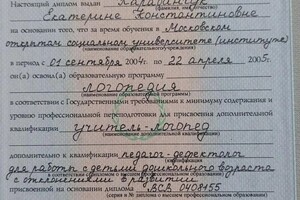 Настоящий диплом выдан
Екатерине Константиновне
(фамилия, имя, отчество)
на основании того, что за время обучения в Московском
открытом социальном университете (институте)
в период с 01 сентября 2004г. по 22 апреля 2005г.
он(а) освоил(а) образовательную программу
логопедия
(наименование образовательной программы)
в соответствии с Государственными требованиями к минимуму содержания и
уровню профессиональной переподготовки для присвоения дополнительной
квалификации учитель-логопед
(наименование квалификации)
дополнительно к квалификации педагог-дефектолог
для работы с детьми дошкольного возраста
с отклонениями в развитии
присвоенной на основании диплома ВСВ
(серия и № диплома о высшем профессиональном образовании)